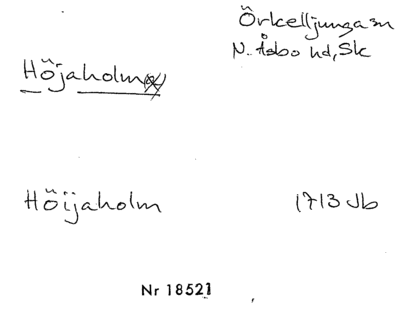 Örkelljunga sn
N. Åsbo hd, Sk
Höjaholm
Höijaholm 1713 Jb
Nr 18521